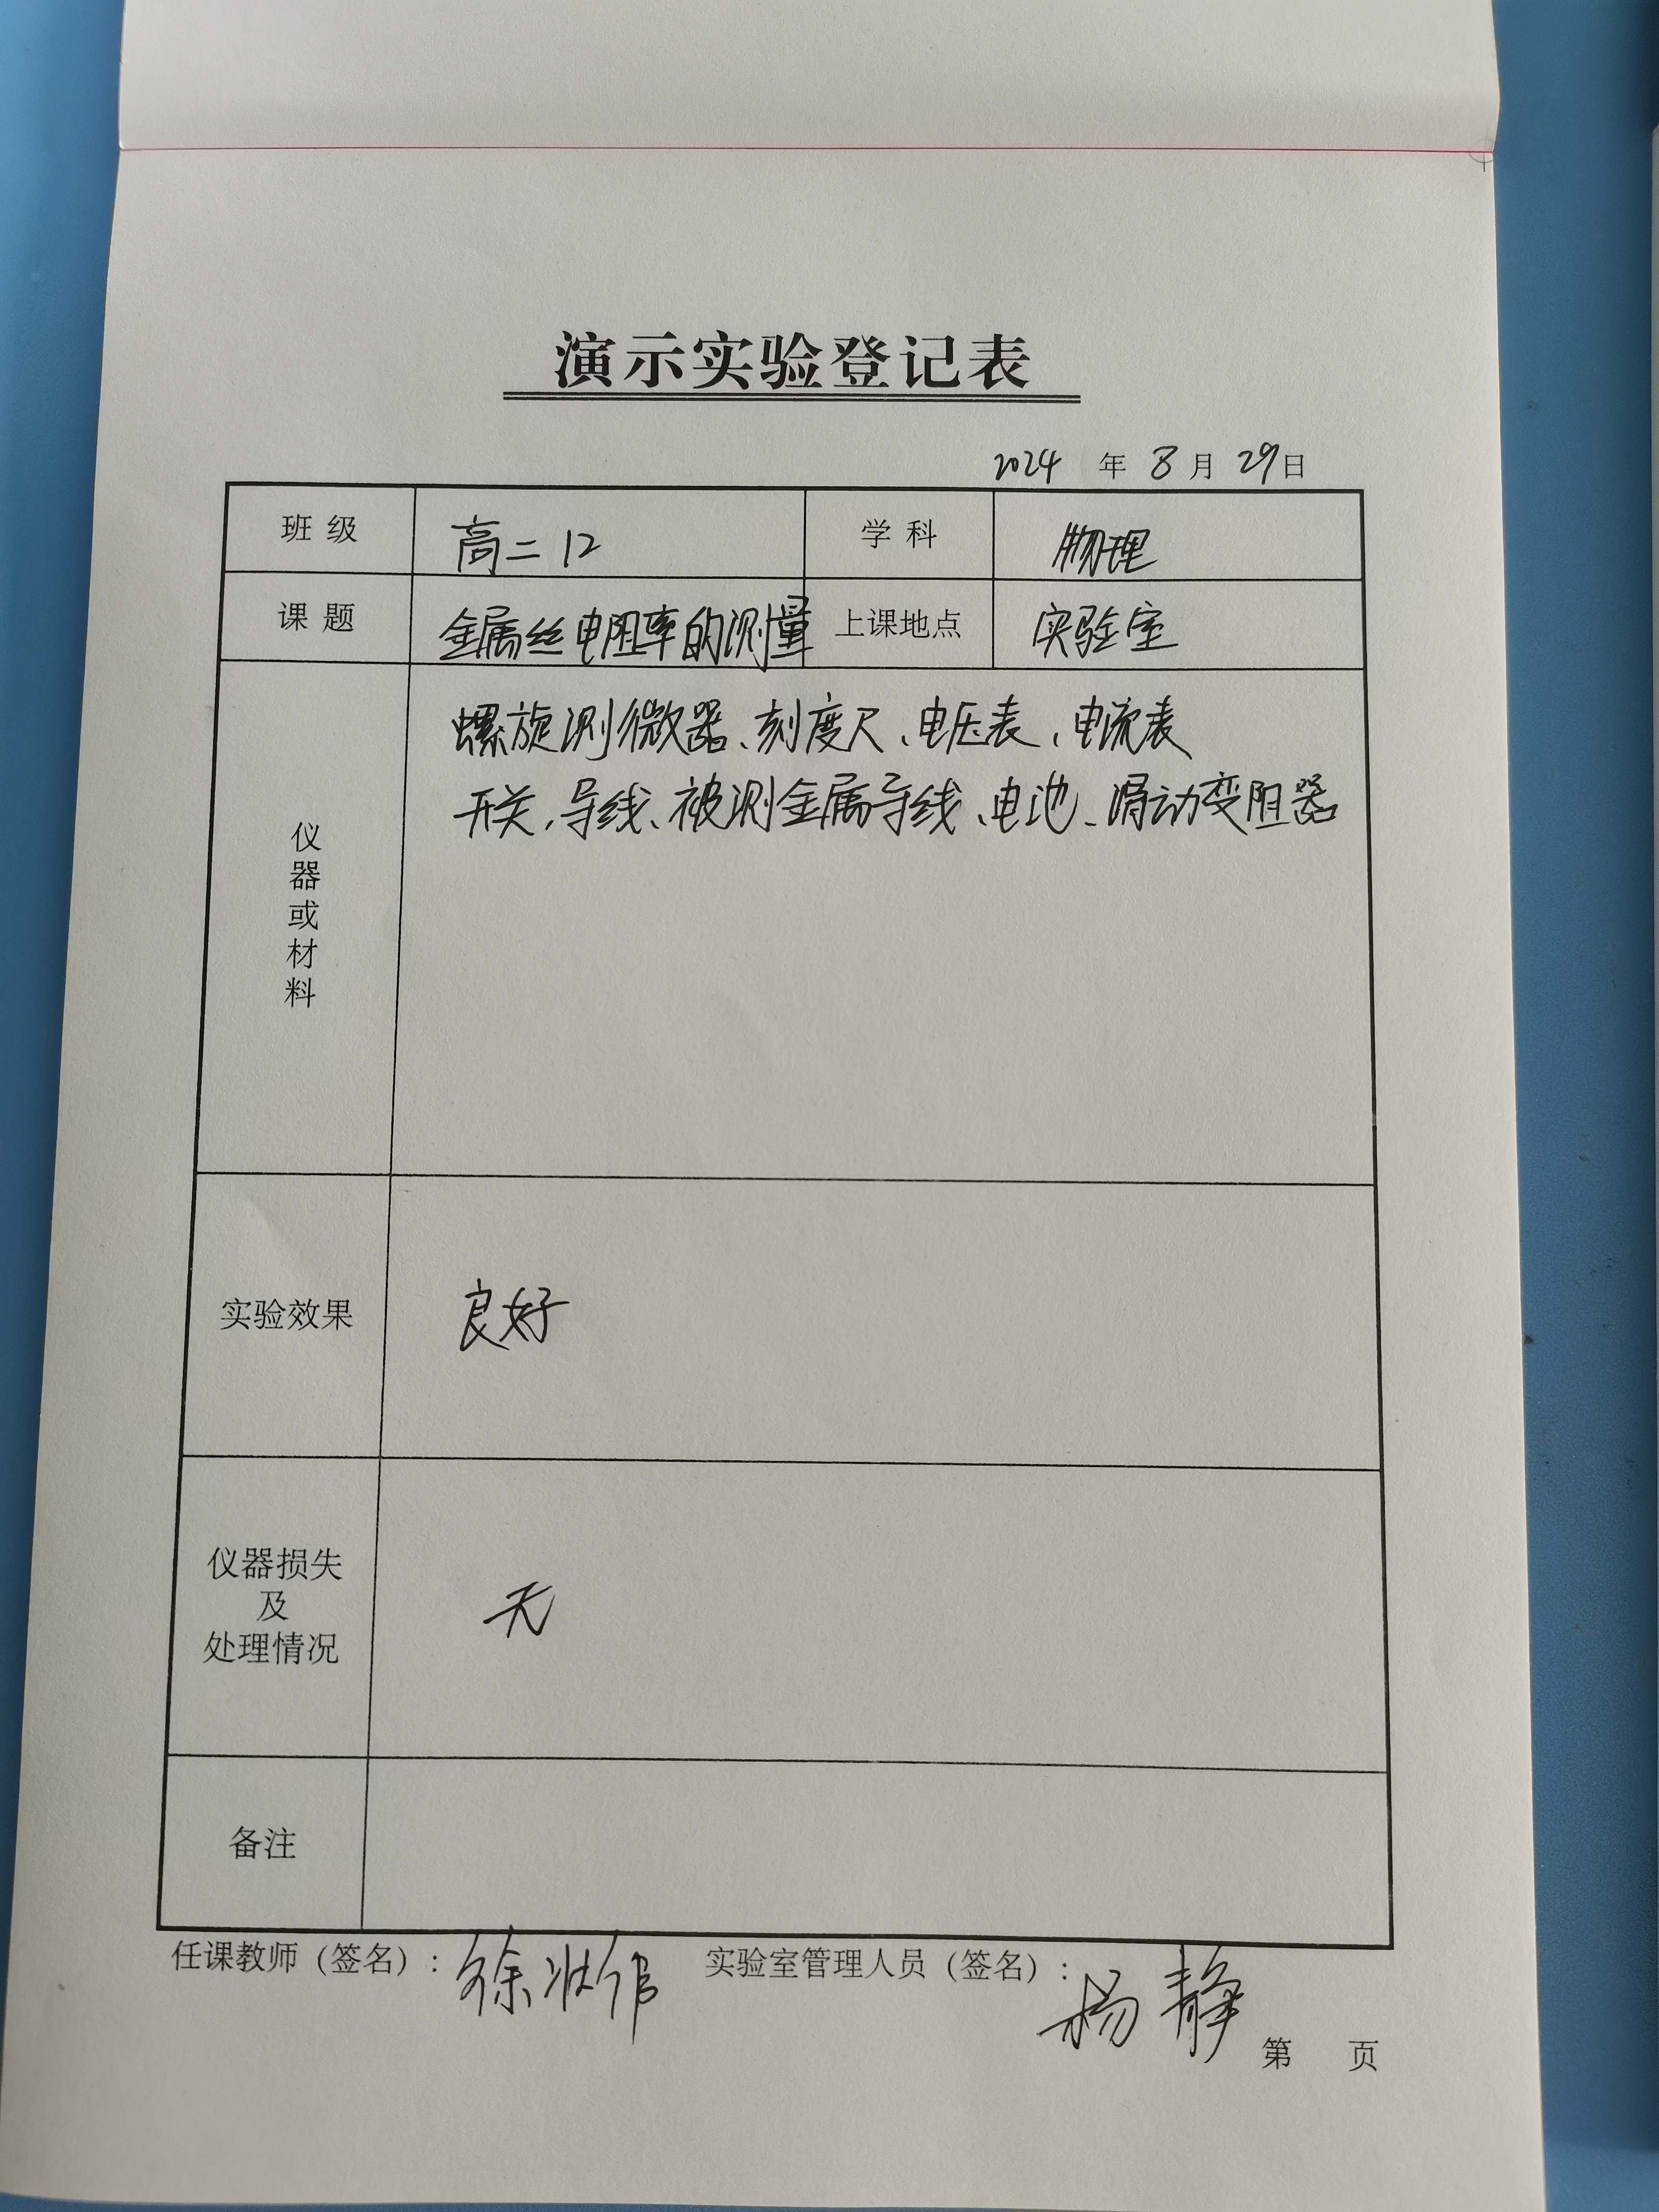 演示实验登记表
2024 年 8 月 29 日
班级 高二12 学科 物理
课题 金属丝电阻率的测量 上课地点 实验室
仪器或材料
螺旋测微器、刻度尺、电压表、电流表
开关、导线、被测金属导线、电池、滑动变阻器
实验效果 良好
仪器损失
及
处理情况
无
备注
任课教师（签名）：徐 实验室管理人员（签名）：杨静
第 页